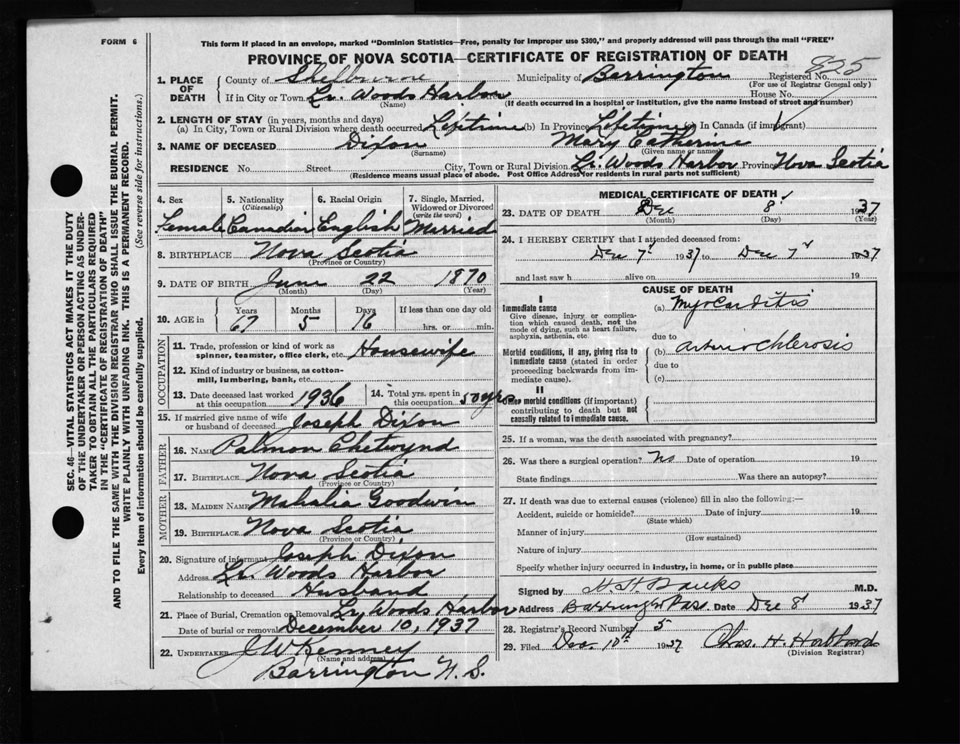 FORM 6
This form if placed in an envelope, marked "Dominion Statistics—Free, penalty for improper use $300," and properly addressed will pass through the mail "FREE"
PROVINCE OF NOVA SCOTIA—CERTIFICATE OF REGISTRATION OF DEATH
825
1. PLACE OF DEATH County of Shelburne Municipality of Barrington Registered No.
(For use of Registrar General only)
If in City or Town Lr. Woods Harbor House No.
(Name) (If death occurred in a hospital or institution, give the name instead of street and number)
2. LENGTH OF STAY (in years, months and days)
(a) In City, Town or Rural Division where death occurred Lifetime (b) In Province Lifetime (c) In Canada (if immigrant)
3. NAME OF DECEASED Dixon Mary Catherine
(Surname) (Given name or names)
RESIDENCE No. Street City, Town or Rural Division Lr. Woods Harbor Province Nova Scotia
(Residence means usual place of abode. Post Office Address for residents in rural parts not sufficient)
SEC. 46—VITAL STATISTICS ACT MAKES IT THE DUTY
OF THE UNDERTAKER OR PERSON ACTING AS UNDER-
TAKER TO OBTAIN ALL THE PARTICULARS REQUIRED
IN THE "CERTIFICATE OF REGISTRATION OF DEATH"
AND TO FILE THE SAME WITH THE DIVISION REGISTRAR WHO SHALL ISSUE THE BURIAL PERMIT.
WRITE PLAINLY WITH UNFADING INK. THIS IS A PERMANENT RECORD.
Every item of information should be carefully supplied. (See reverse side for instructions.)
4. Sex 5. Nationality (Citizenship) 6. Racial Origin 7. Single, Married, Widowed or Divorced (write the word)
Female Canadian English Married
8. BIRTHPLACE Nova Scotia
(Province or Country)
9. DATE OF BIRTH June 22 1870
(Month) (Day) (Year)
10. AGE in Years Months Days If less than one day old
67 5 16 hrs. or min.
OCCUPATION
11. Trade, profession or kind of work as spinner, teamster, office clerk, etc. Housewife
12. Kind of industry or business, as cotton-mill, lumbering, bank, etc.
13. Date deceased last worked at this occupation 1936 14. Total yrs. spent in this occupation 50 yrs
15. If married give name of wife or husband of deceased Joseph Dixon
FATHER
16. NAME Palmon Chetwynd
17. BIRTHPLACE Nova Scotia
(Province or Country)
MOTHER
18. MAIDEN NAME Mahalia Goodwin
19. BIRTHPLACE Nova Scotia
(Province or Country)
20. Signature of informant Joseph Dixon
Address Lr. Woods Harbor
Relationship to deceased Husband
21. Place of Burial, Cremation or Removal Lr Woods Harbor
Date of burial or removal December 10, 1937
22. UNDERTAKER J W Kenney
(Name and address)
Barrington N. S.
MEDICAL CERTIFICATE OF DEATH
23. DATE OF DEATH Dec 8 1937
(Month) (Day) (Year)
24. I HEREBY CERTIFY that I attended deceased from:
Dec 7 1937 to Dec 7 1937
and last saw h alive on 19
CAUSE OF DEATH
I
Immediate cause
Give disease, injury or complication which caused death, not the mode of dying, such as heart failure, asphyxia, asthenia, etc.
(a) Myocarditis
due to
Morbid conditions, if any, giving rise to immediate cause (stated in order proceeding backwards from immediate cause).
(b) arteriochlerosis
due to
(c)
II
Other morbid conditions (if important) contributing to death but not causally related to immediate cause.
25. If a woman, was the death associated with pregnancy?
26. Was there a surgical operation? No Date of operation 19
State findings Was there an autopsy?
27. If death was due to external causes (violence) fill in also the following:—
Accident, suicide or homicide? Date of injury 19
(State which)
Manner of injury
(How sustained)
Nature of injury
Specify whether injury occurred in industry, in home, or in public place
Signed by H. H. Banks M.D.
Address Barrington Pass. Date Dec 8 1937
28. Registrar's Record Number 5
29. Filed Dec. 10 1937 Chas. H.
(Division Registrar)